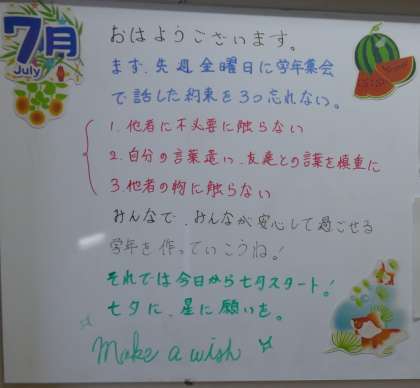 7月
July
おはようございます。
まず、先週金曜日に学年集会
で話した約束を3つ忘れない。
1.他者に不必要に触らない
2.自分の言葉遣い、友達との言葉を慎重に
3.他者の物に触らない
みんなで、みんなが安心して過ごせる
学年を作っていこうね!
それでは今日から七夕スタート!
七夕に、星に願いを。
Make a wish